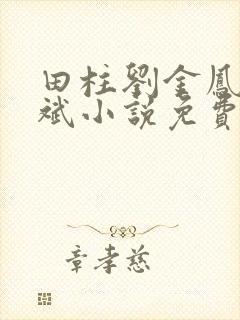 田柱劉金鳳
斌小説免費
章孝慈